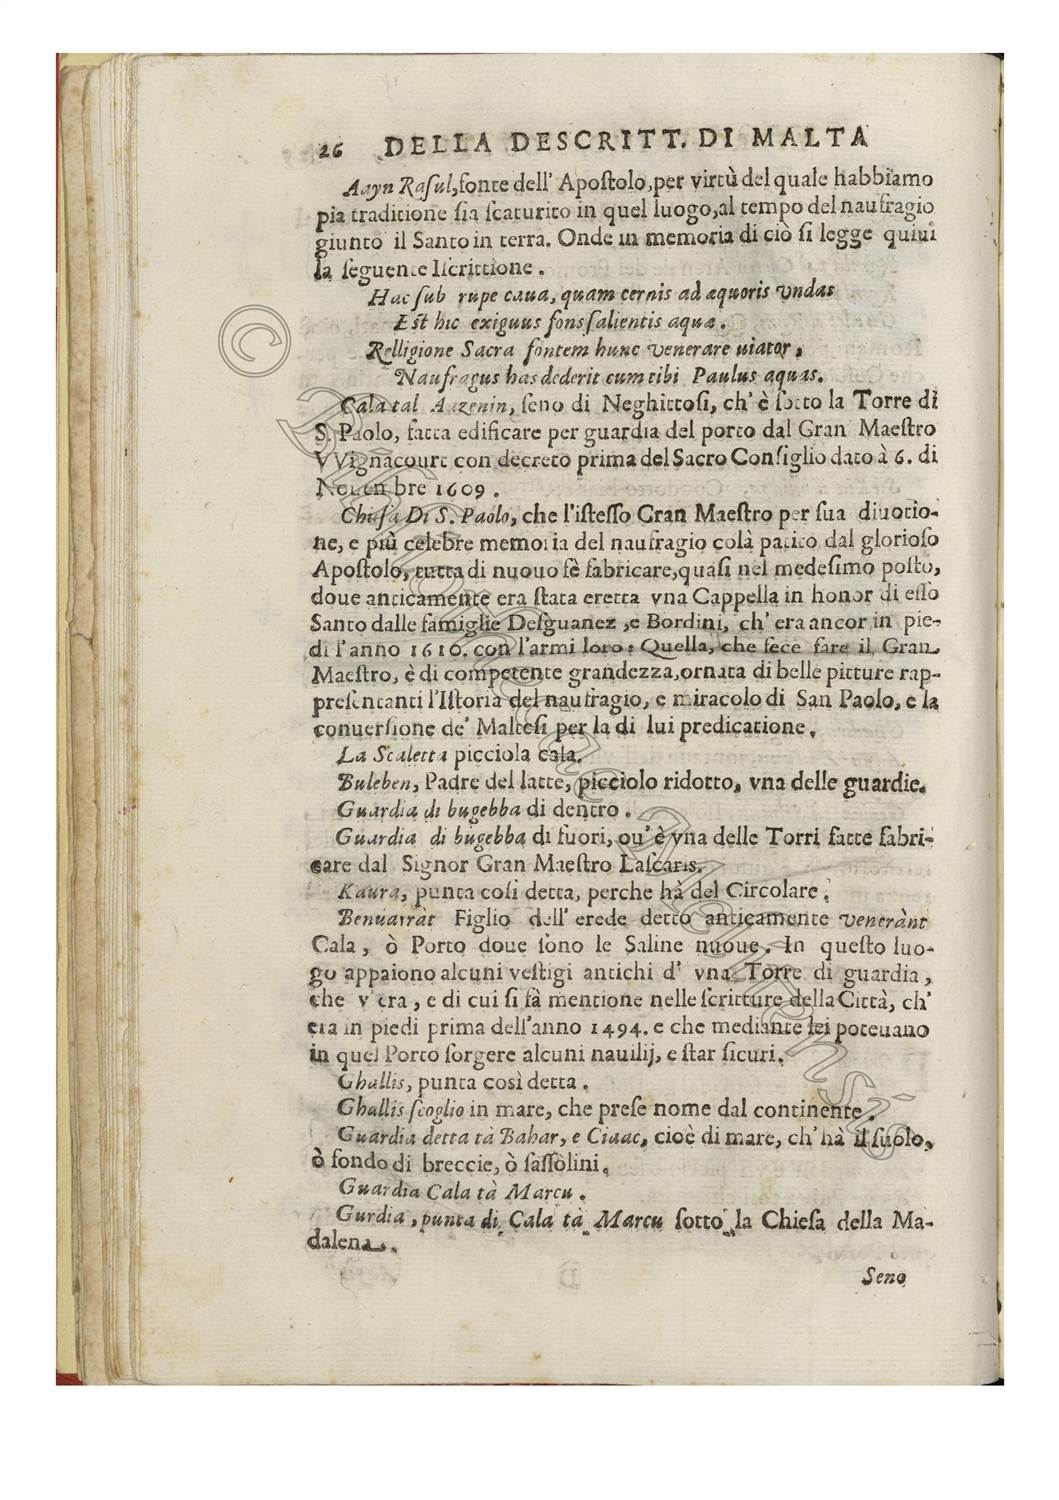 26 DELLA DESCRITT. DI MALTA
Aayn Raſul, fonte dell' Apoſtolo, per virtù del quale habbiamo
pia traditione ſia ſcaturito in quel luogo, al tempo del naufragio
giunto il Santo in terra. Onde in memoria di ciò ſi legge quiui
la ſeguente Iſcrittione.
Hac ſub rupe caua, quam cernis ad æquoris vndas
Eſt hic exiguus fons ſalientis aquæ.
Relligione Sacra fontem hunc venerare uiator,
Naufragus has dederit cum tibi Paulus aquas.
Cala tal Aazenin, ſeno di Neghittoſi, ch' è ſotto la Torre di
S. Paolo, fatta edificare per guardia del porto dal Gran Maeſtro
VVignacourt con decreto prima del Sacro Conſiglio dato à 6. di
Nouembre 1609.
Chieſa Di S. Paolo, che l'iſteſſo Gran Maeſtro per ſua diuotio-
ne, e più celebre memoria del naufragio colà patito dal glorioſo
Apoſtolo, tutta di nuouo fè fabricare, quaſi nel medeſimo poſto,
doue anticamente era ſtata eretta vna Cappella in honor di eſſo
Santo dalle famiglie Deſguanez, e Bordini, ch' era ancor in pie-
di l'anno 1610. con l'armi loro: Quella, che fece fare il Gran
Maeſtro, è di competente grandezza, ornata di belle pitture rap-
preſentanti l'Iſtoria del naufragio, e miracolo di San Paolo, e la
conuerſione de' Malteſi per la di lui predicatione.
La Scaletta picciola cala.
Buleben, Padre del latte, picciolo ridotto, vna delle guardie.
Guardia di bugebba di dentro.
Guardia di bugebba di fuori, ou' è vna delle Torri fatte fabri-
care dal Signor Gran Maeſtro Laſcaris.
Kaura, punta coſi detta, perche hà del Circolare.
Benuarràt Figlio dell' erede detto anticamente venerànt
Cala, ò Porto doue ſono le Saline nuoue. In queſto luo-
go appaiono alcuni veſtigi antichi d' vna Torre di guardia,
che v'era, e di cui ſi fà mentione nelle ſcritture della Città, ch'
era in piedi prima dell'anno 1494. e che mediante lei poteuano
in quel Porto ſorgere alcuni nauilij, e ſtar ſicuri.
Ghallis, punta così detta.
Ghallis ſcoglio in mare, che preſe nome dal continente.
Guardia detta tà Bahar, e Ciaac, cioè di mare, ch' hà il ſuolo,
ò fondo di breccie, ò ſaſſolini.
Guardia Cala tà Marcu.
Gurdia, punta di Cala tà Marcu ſotto la Chieſa della Ma-
dalena.
Seno